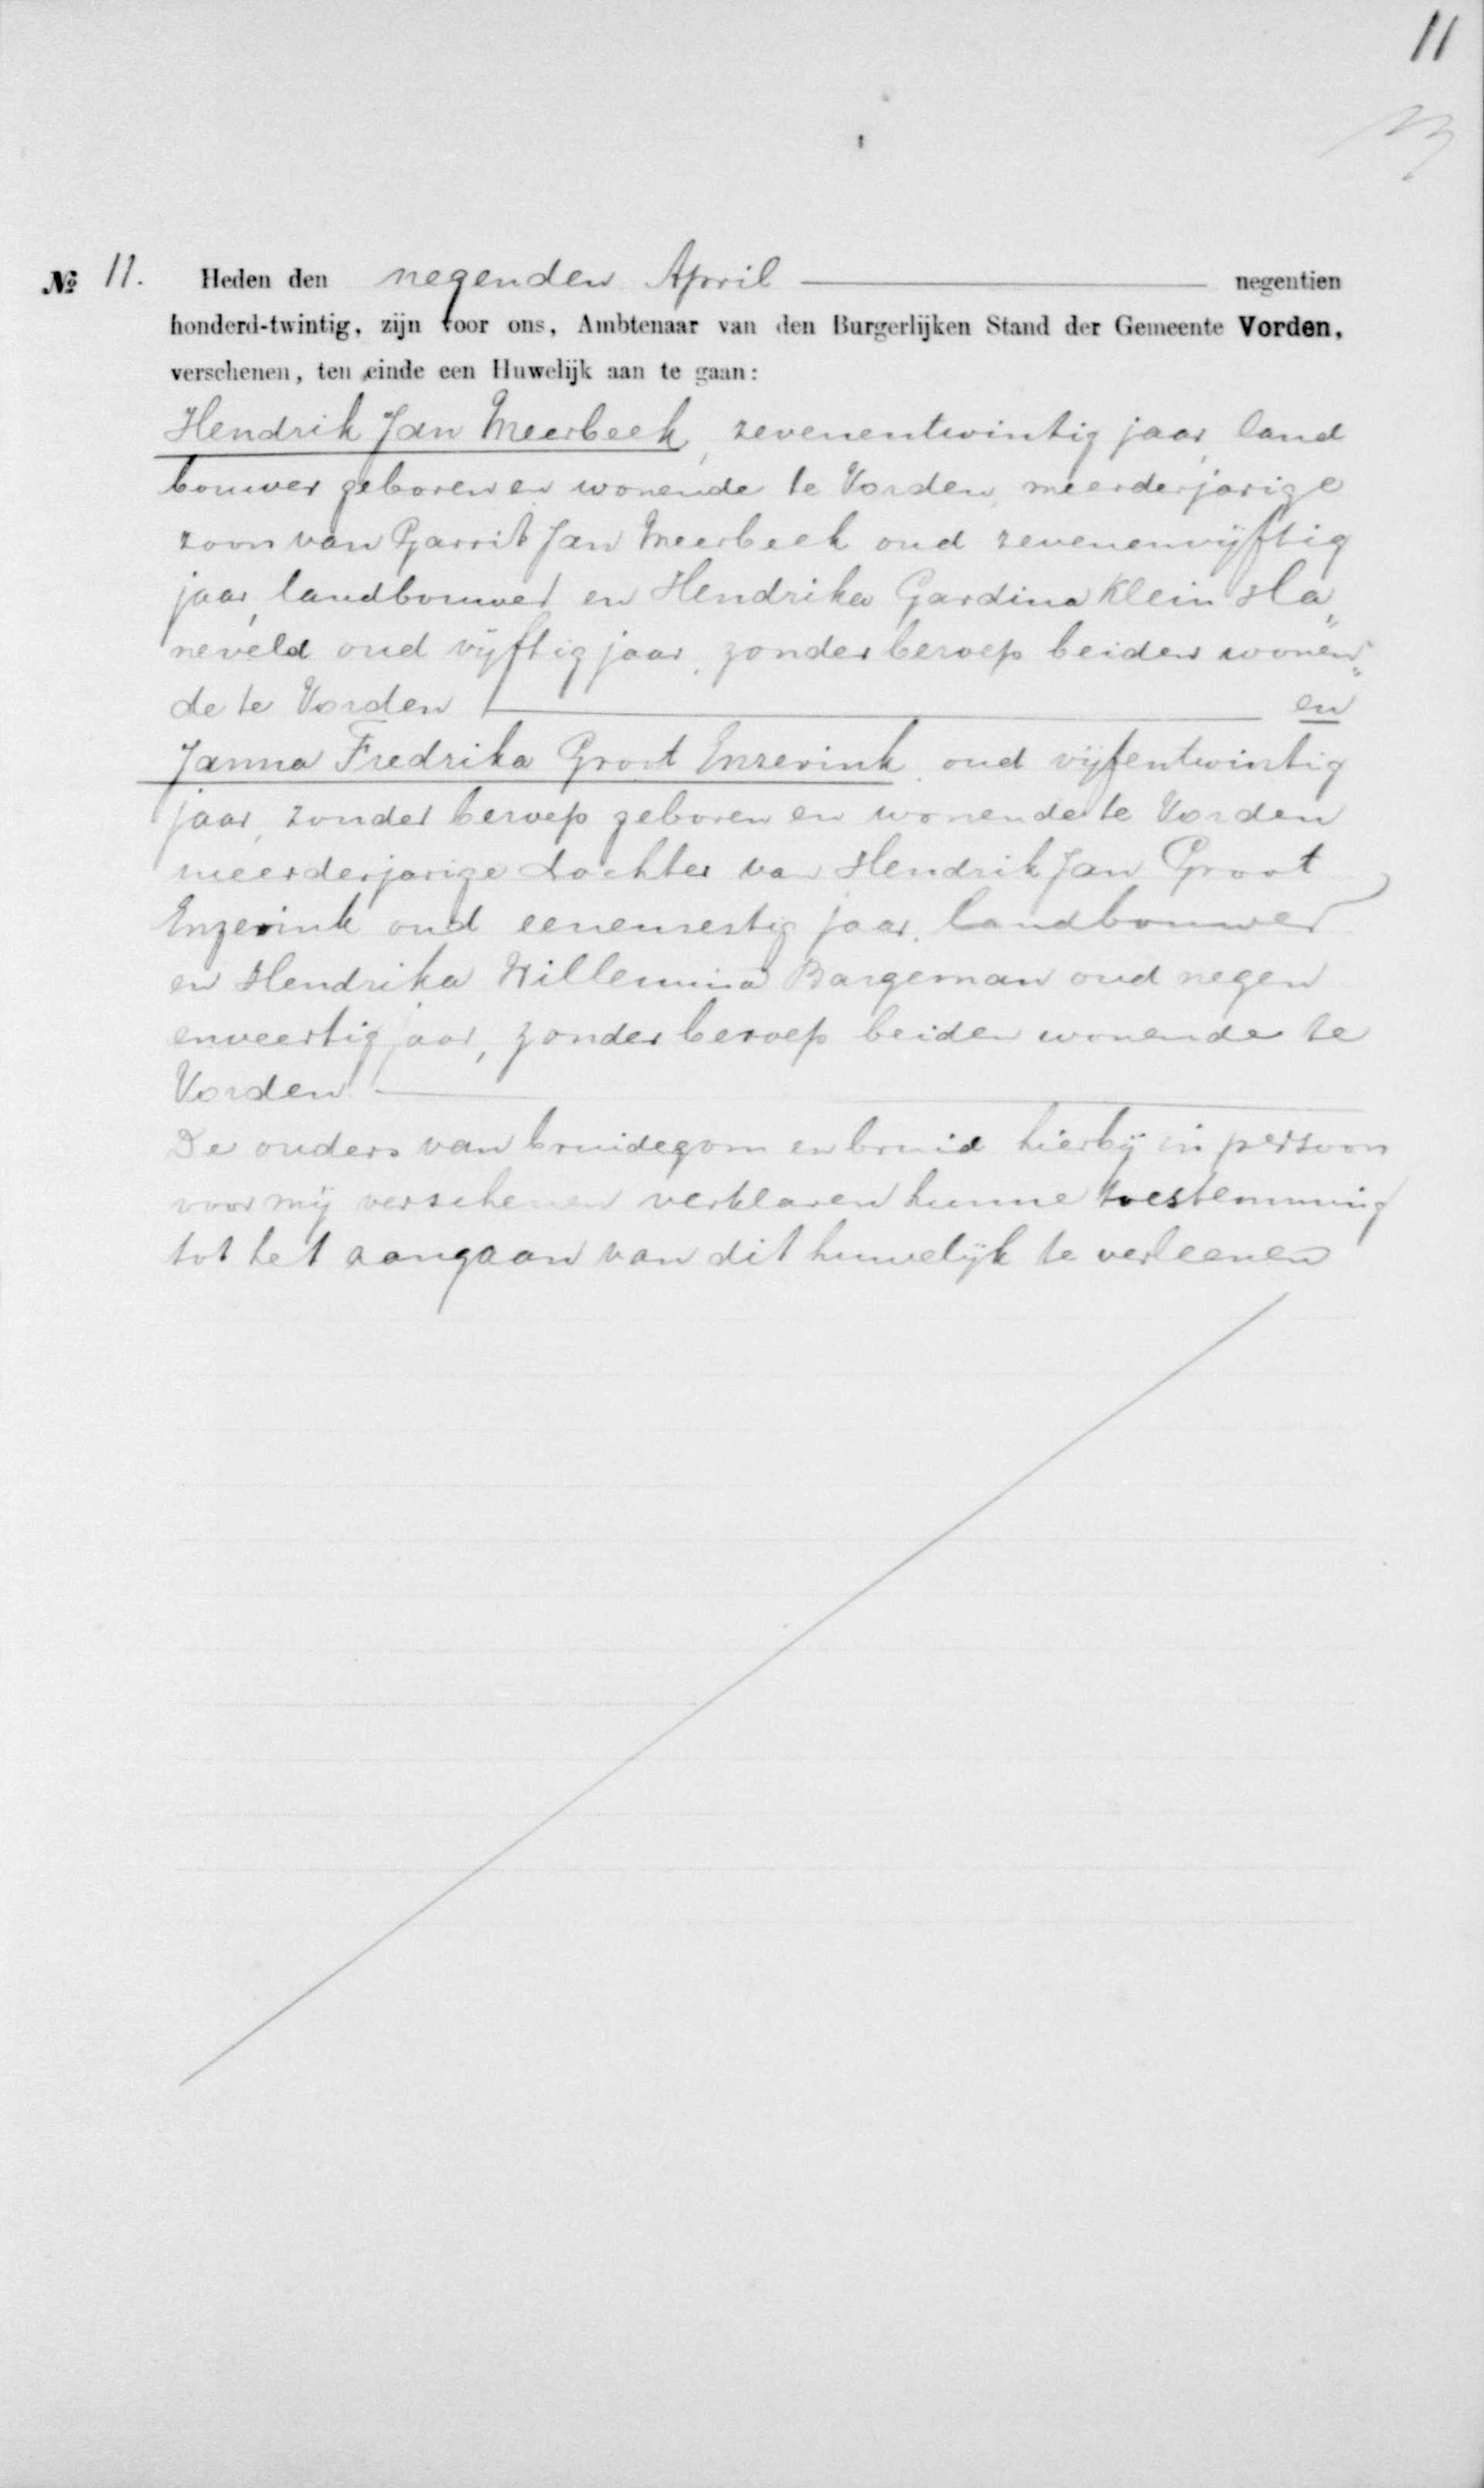 11
№ 11. Heden den negenden April negentien
honderd-twintig, zijn voor ons, Ambtenaar van den Burgerlijken Stand der Gemeente Vorden,
verschenen, ten einde een Huwelijk aan te gaan:
Hendrik Jan Meerbeek, zevenentwintig jaar, land
bouwer geboren en wonende te Vorden, meerderjarige
zoon van Garrit Jan Meerbeek oud zevenenvijftig
jaar, landbouwer en Hendrika Gardina Klein Ha„
neveld oud vijftig jaar, zonder beroep beiden wonen„
de te Vorden en
Janna Fredrika Groot Enzerink, oud vijfentwintig
jaar, zonder beroep geboren en wonende te Vorden
meerderjarige dochter van Hendrik Jan Groot
Enzerink oud eenenzestig jaar, landbouwer
en Hendrika Willemina Bargeman oud negen
enveertig jaar, zonder beroep beiden wonende te
Vorden
De ouders van bruidegom en bruid hierbij in persoon
voor mij verschenen verklaren hunne toestemming
tot het aangaan van dit huwelijk te verleenen